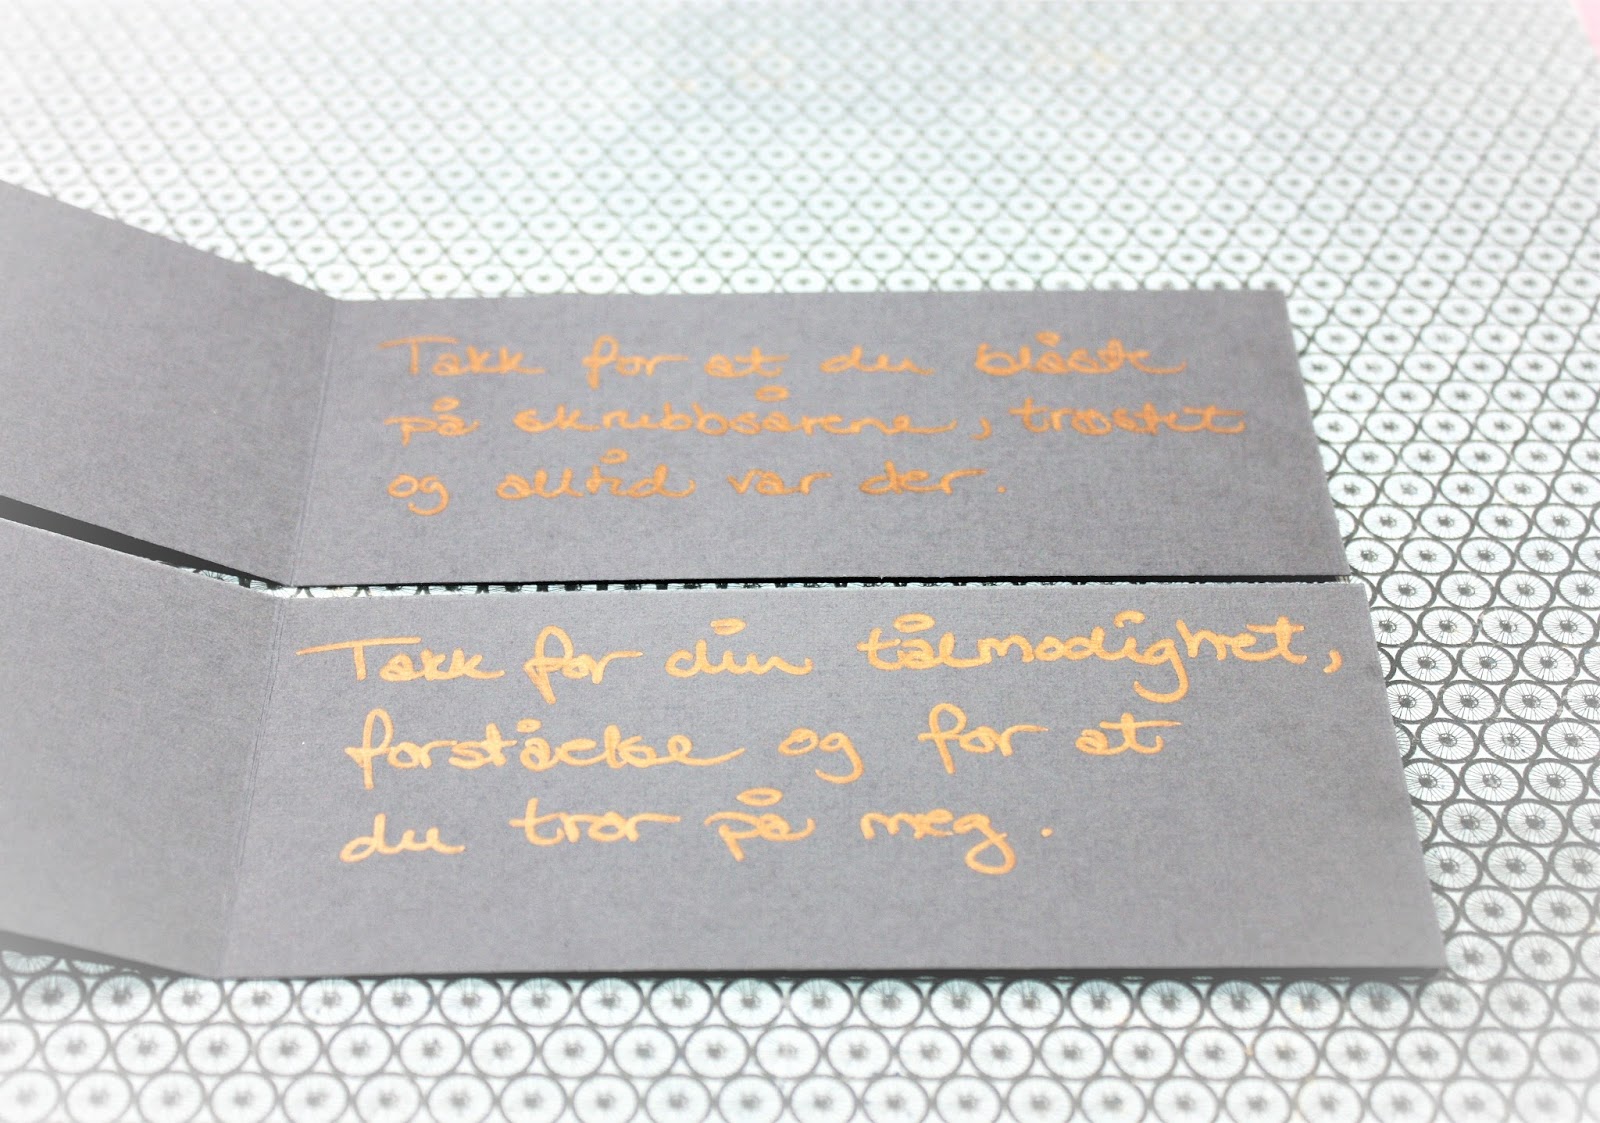 Takk for at du blåste
på skrubbsårene, trøstet
og alltid var der.
Takk for din tålmodighet,
forståelse og for at
du tror på meg.